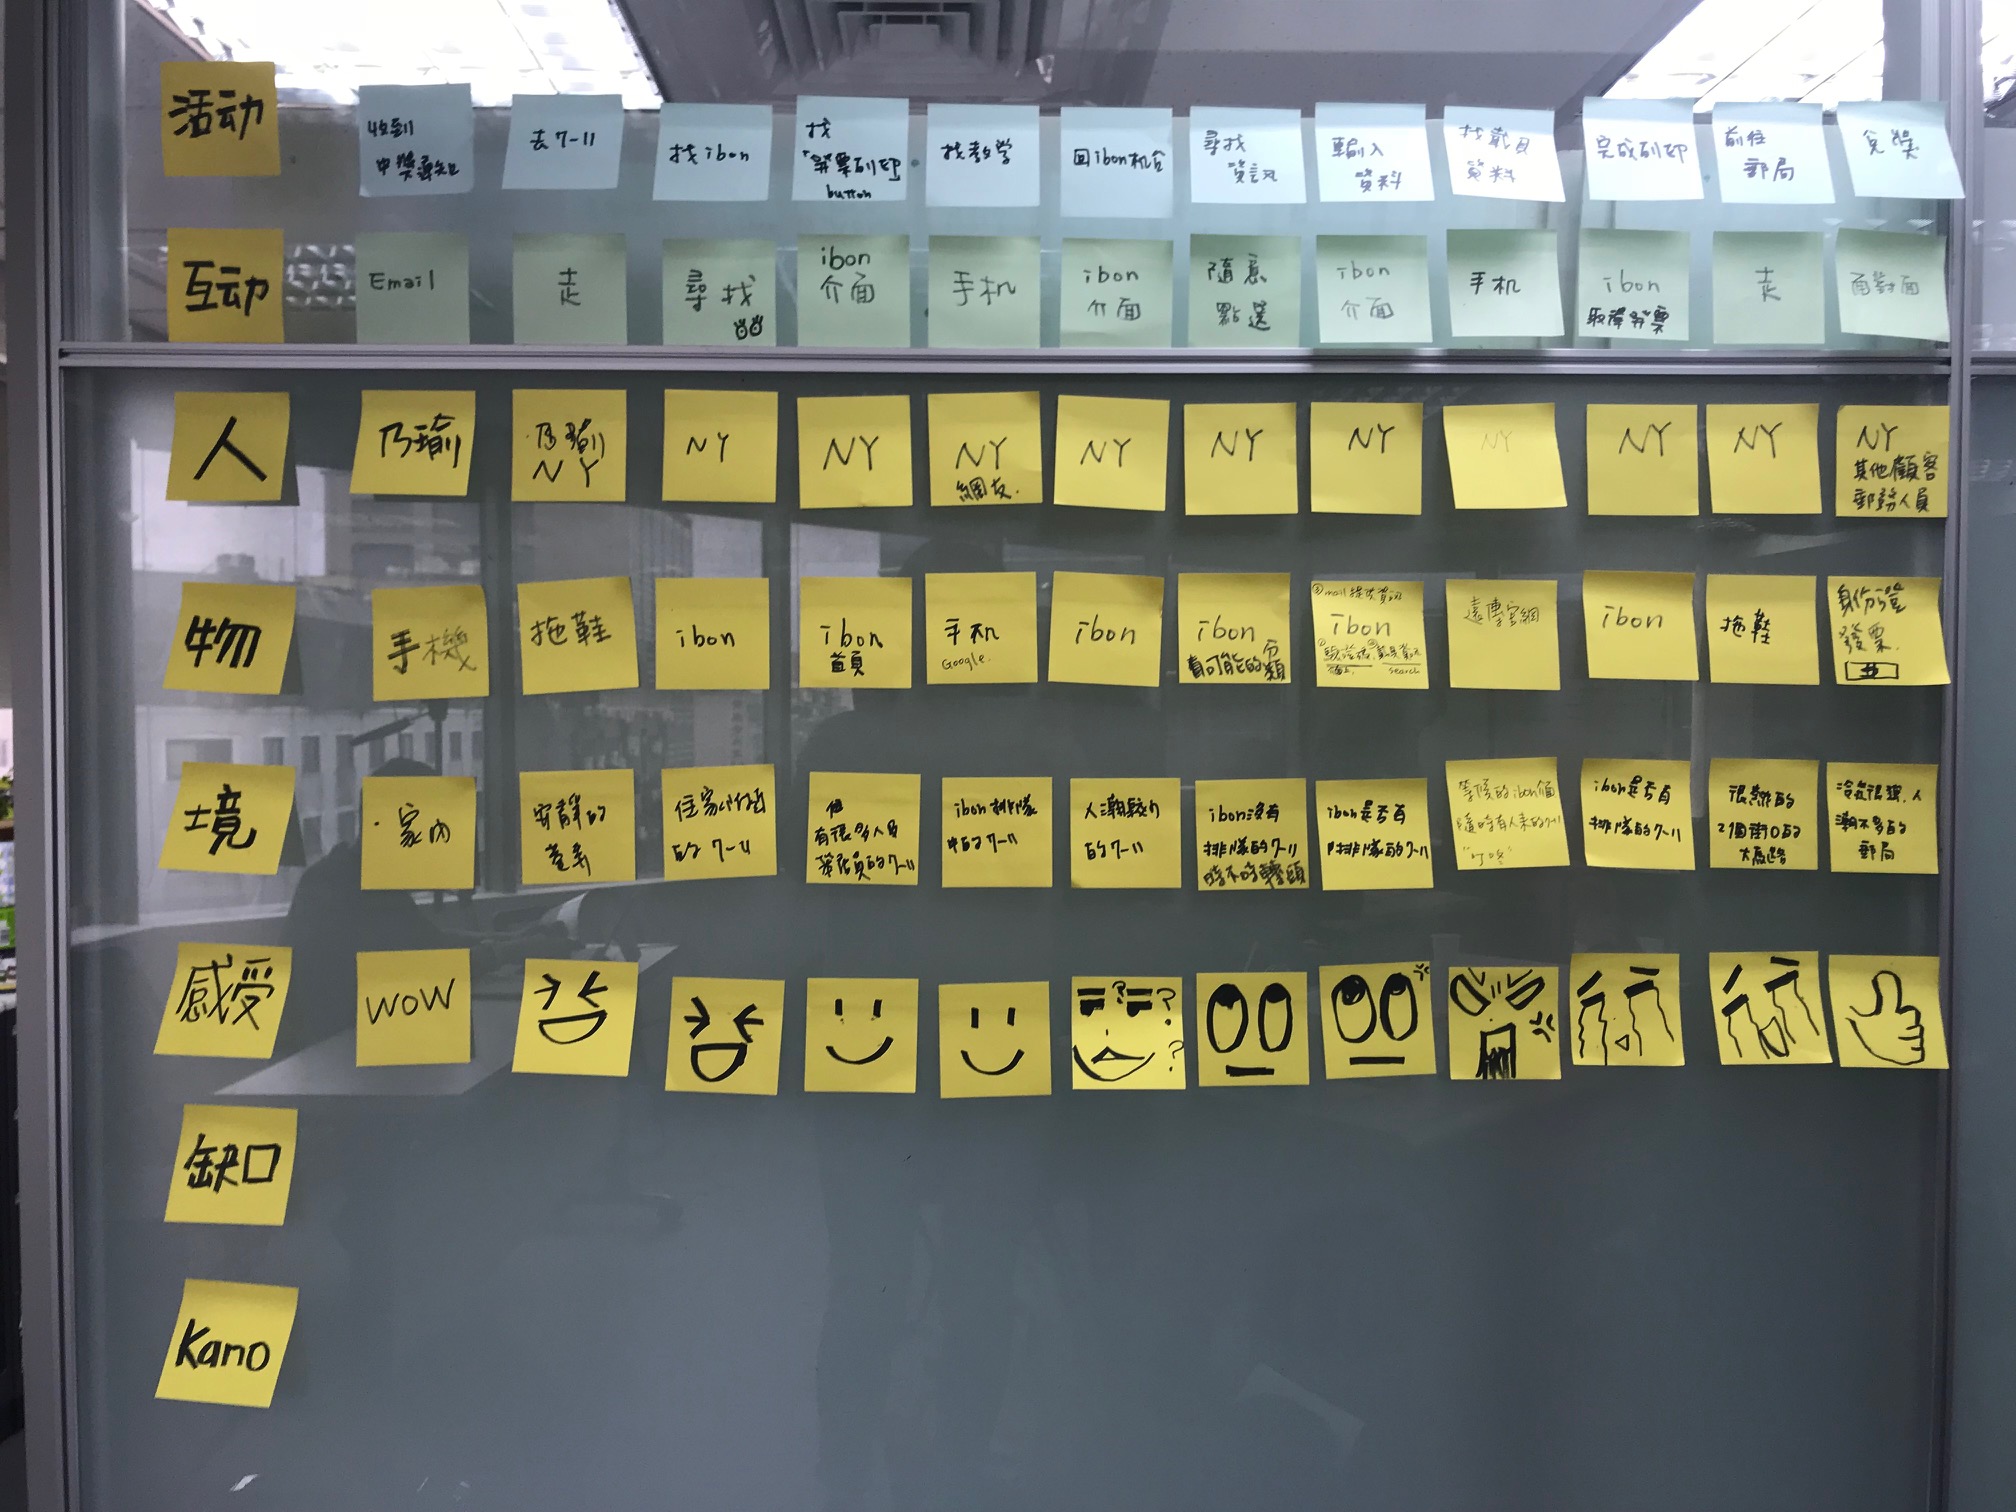 活动
收到
中獎通知
去7-11
找ibon
找
「發票列印」
button
找教学
回ibon机台
尋找
資訊
輸入
資料
找載具
資料
完成列印
前往
郵局
兌獎
互动
Email
走
尋找
ibon
介面
手机
ibon
介面
隨意
點選
ibon
介面
手机
ibon
取得發票
走
面對面
人
乃瑜
乃瑜
NY
NY
NY
NY
網友.
NY
NY
NY
NY
NY
NY
NY
其他顧客
郵務人員
物
手機
拖鞋
ibon
ibon
首頁
手机
Google.
ibon
ibon
有可能的分類
③mail提供資訊
ibon
search
遠傳官網
ibon
拖鞋
身份證
發票.
境
家內
安靜的
巷弄
住家附近
的7-11
有很多人
7-11
ibon排隊
中的7-11
人潮較少
的7-11
ibon沒有
排隊的7-11
時不時轉頭
ibon是否有
排隊的7-11
等候的ibon
隨時有人來的7-11
"叮咚"
ibon是否有
排隊的7-11
很熱的
2個街口的
大馬路
冷氣很強.人
潮不多的
郵局
感受
WOW
? ?
?
缺口
Kano